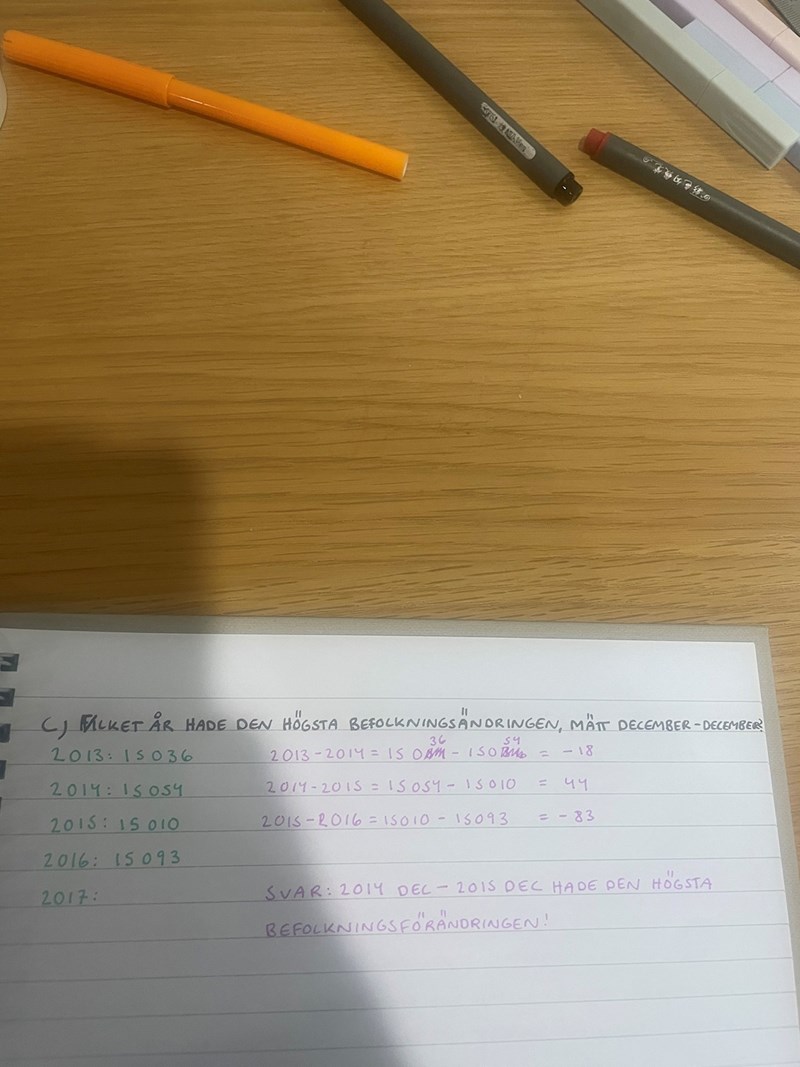 C) VILKET ÅR HADE DEN HÖGSTA BEFOLKNINGSÄNDRINGEN, MÄTT DECEMBER-DECEMBER?
2013: 15036 2013-2014 = 15036 - 15054 = -18
2014: 15054 2014-2015 = 15054 - 15010 = 44
2015: 15010 2015-2016 = 15010 - 15093 = -83
2016: 15093
2017: SVAR: 2014 DEC - 2015 DEC HADE DEN HÖGSTA
BEFOLKNINGSFÖRÄNDRINGEN!